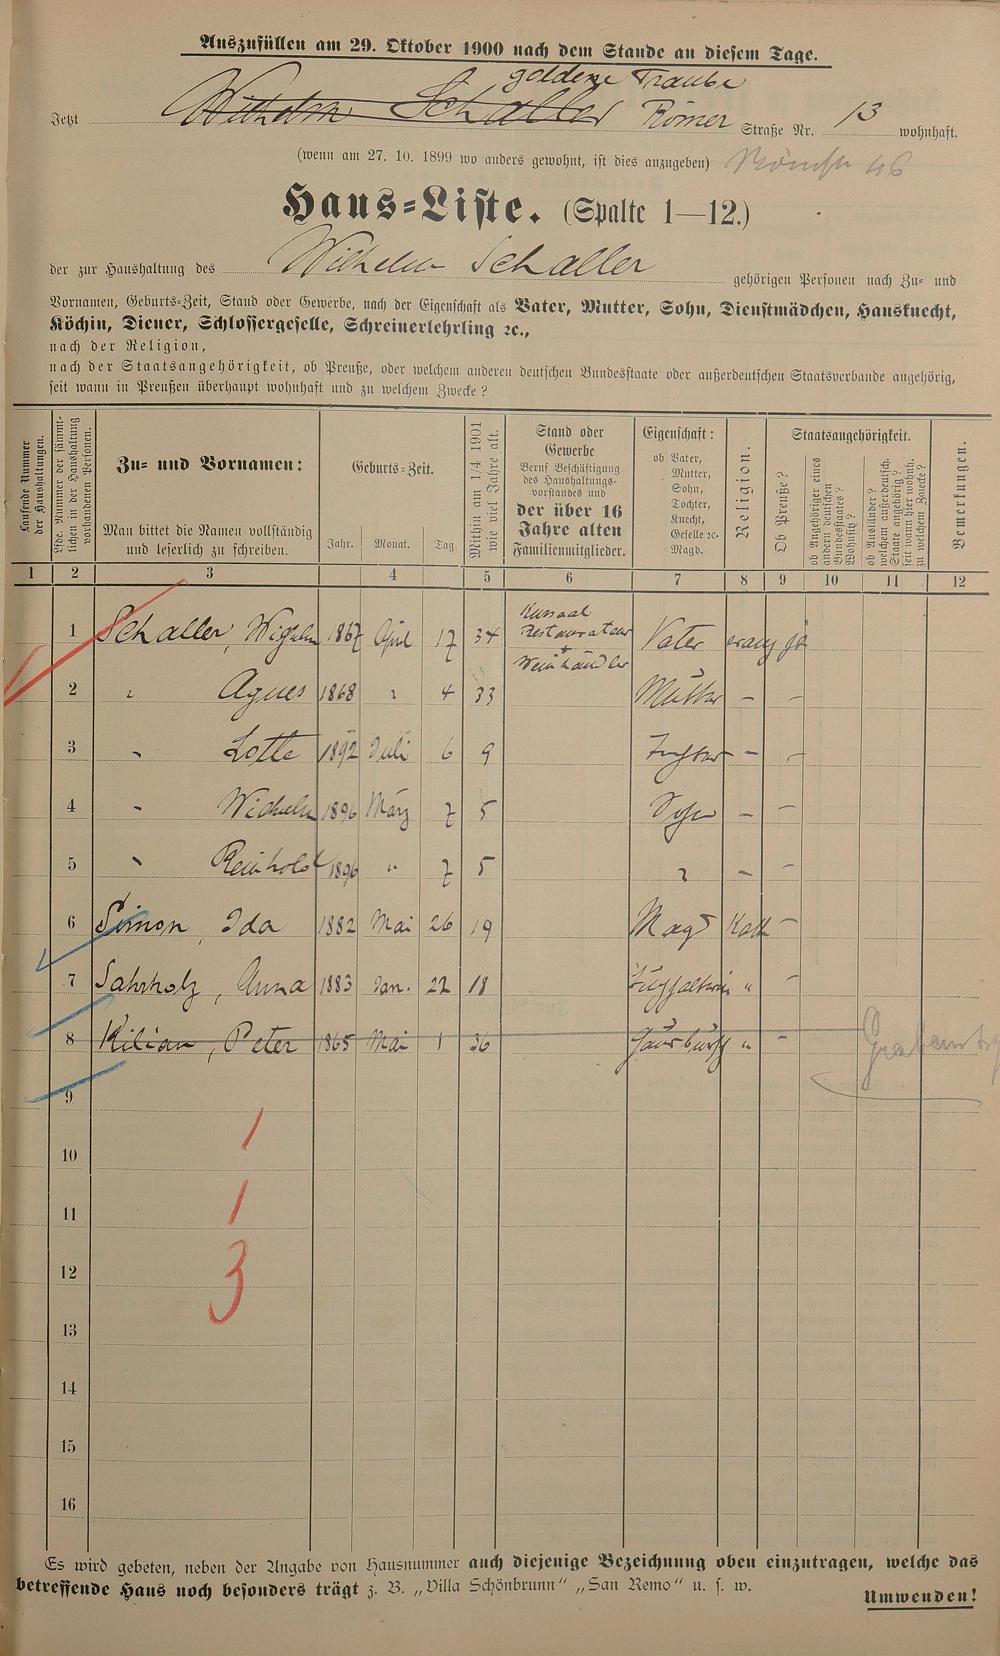 Auszufüllen am 29. Oktober 1900 nach dem Stande an diesem Tage.
goldene Traube
Jetzt Wilhelm Schaller Römer Straße Nr. 13 wohnhaft.
(wenn am 27. 10. 1899 wo anders gewohnt, ist dies anzugeben) 46
Haus-Liste. (Spalte 1—12.)
der zur Haushaltung des Wilhelm Schaller gehörigen Personen nach Zu- und
Vornamen, Geburts-Zeit, Stand oder Gewerbe, nach der Eigenschaft als Vater, Mutter, Sohn, Dienstmädchen, Hausknecht,
Köchin, Diener, Schlossergeselle, Schreinerlehrling ꝛc.,
nach der Religion,
nach der Staatsangehörigkeit, ob Preuße, oder welchem anderen deutschen Bundesstaate oder außerdeutschen Staatsverbande angehörig,
seit wann in Preußen überhaupt wohnhaft und zu welchem Zwecke?
Laufende Nummer der Haushaltungen.
Lfde. Nummer der sämmtlichen in der Haushaltung vorhandenen Personen.
Zu- und Vornamen:
Man bittet die Namen vollständig
und leserlich zu schreiben.
Geburts-Zeit.
Jahr. Monat. Tag.
Mithin am 1/4 1901 wie viel Jahre alt.
Stand oder
Gewerbe
Beruf Beschäftigung
des Haushaltungs-
vorstandes und
der über 16
Jahre alten
Familienmitglieder.
Eigenschaft:
ob Vater,
Mutter,
Sohn,
Tochter,
Knecht,
Geselle ꝛc.
Magd.
Religion.
Staatsangehörigkeit.
Ob Preuße?
ob Angehöriger eines andern deutschen Bundesstaates? Wohnsitz?
ob Ausländer? welchem außerdeutsch. Staate angehörig? seit wann hier wohnh. zu welchem Zwecke?
Bemerkungen.
1 2 3 4 5 6 7 8 9 10 11 12
Kursaal
Restaurateur
+
Weinhändler
1 Schaller, Wilhelm 1867 April 17 34 Vater evang ja
2 " Agnes 1868 " 4 33 Mutter – –
3 " Lotte 1892 Juli 6 9 Tochter – –
4 " Wilhelm 1896 März 7 5 Sohn – –
5 " Reinhold 1896 " 7 5 " – –
6 Simon, Ida 1882 Mai 26 19 Magd Kath –
7 Sahrholz, Anna 1883 Jan. 22 18 " –
8 Kilian, Peter 1865 Mai 1 36 Hausbursch " –
9
10
11
12
13
14
15
16
1
1
3
Es wird gebeten, neben der Angabe von Hausnummer auch diejenige Bezeichnung oben einzutragen, welche das
betreffende Haus noch besonders trägt z. B. „Villa Schönbrunn" „San Remo" u. s. w.
Umwenden!